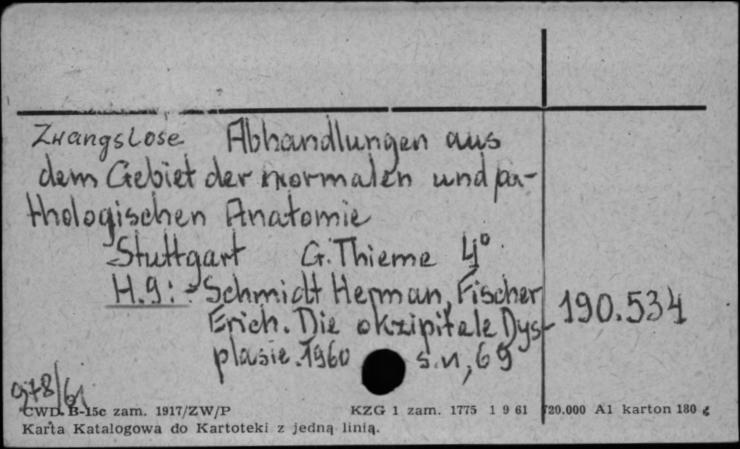 Zwangslose Abhandlungen aus
dem Gebiet der normalen und pa-
thologischen Anatomie
Stuttgart G. Thieme 4°
H. 9: Schmidt Herman, Fischer
Erich. Die okzipitale Dys-
plasie. 1960 s. n, 69
190.534
978/61
CWD. B-15c zam. 1917/ZW/P KZG 1 zam. 1775 1 9 61 720.000 A1 karton 180 g
Karta Katalogowa do Kartoteki z jedną linią.